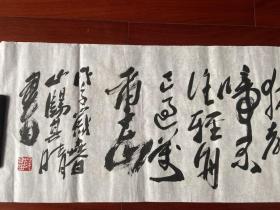 猿声
啼不
住轻舟
已过万
重山
戊子岁春